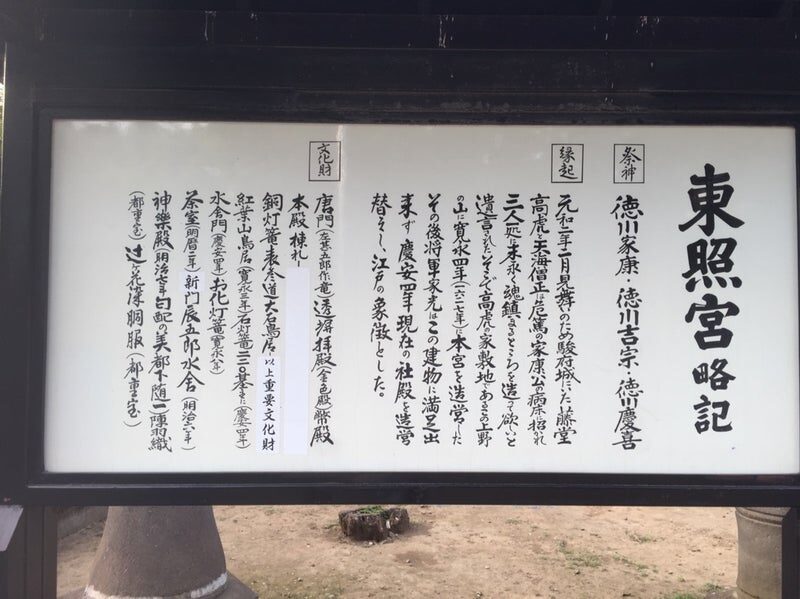 東照宮略記
祭神
徳川家康・徳川吉宗・徳川慶喜
縁起
元和二年二月見舞いのため駿府城にいた藤堂
高虎と天海僧正は危篤の家康公の病床に招かれ
三人一処に末永く魂鎮まるところを造って欲しいと
遺言された。そこで高虎の家敷地であるこの上野
の山に寛永四年(一六二七年)に本宮を造営した
その後将軍家光はこの建物に満足出
来ず、慶安四年現在の社殿を造営
替えし、江戸の象徴とした。
文化財
唐門(左甚五郎作の竜)透塀拝殿(金色殿)幣殿
本殿棟札
銅灯篭表参道大石鳥居 以上重要文化財
紅葉山鳥居(寛永三年)石灯篭二三〇基(慶安四年)
水舎門(慶安四年)お化灯篭(寛永八年)
茶室(明暦二年)新門辰五郎水舎(明治六年)
神樂殿(明治七年)勾配の美都下随一陣羽織
(都重宝)辻ヶ花染胴服(都重宝)